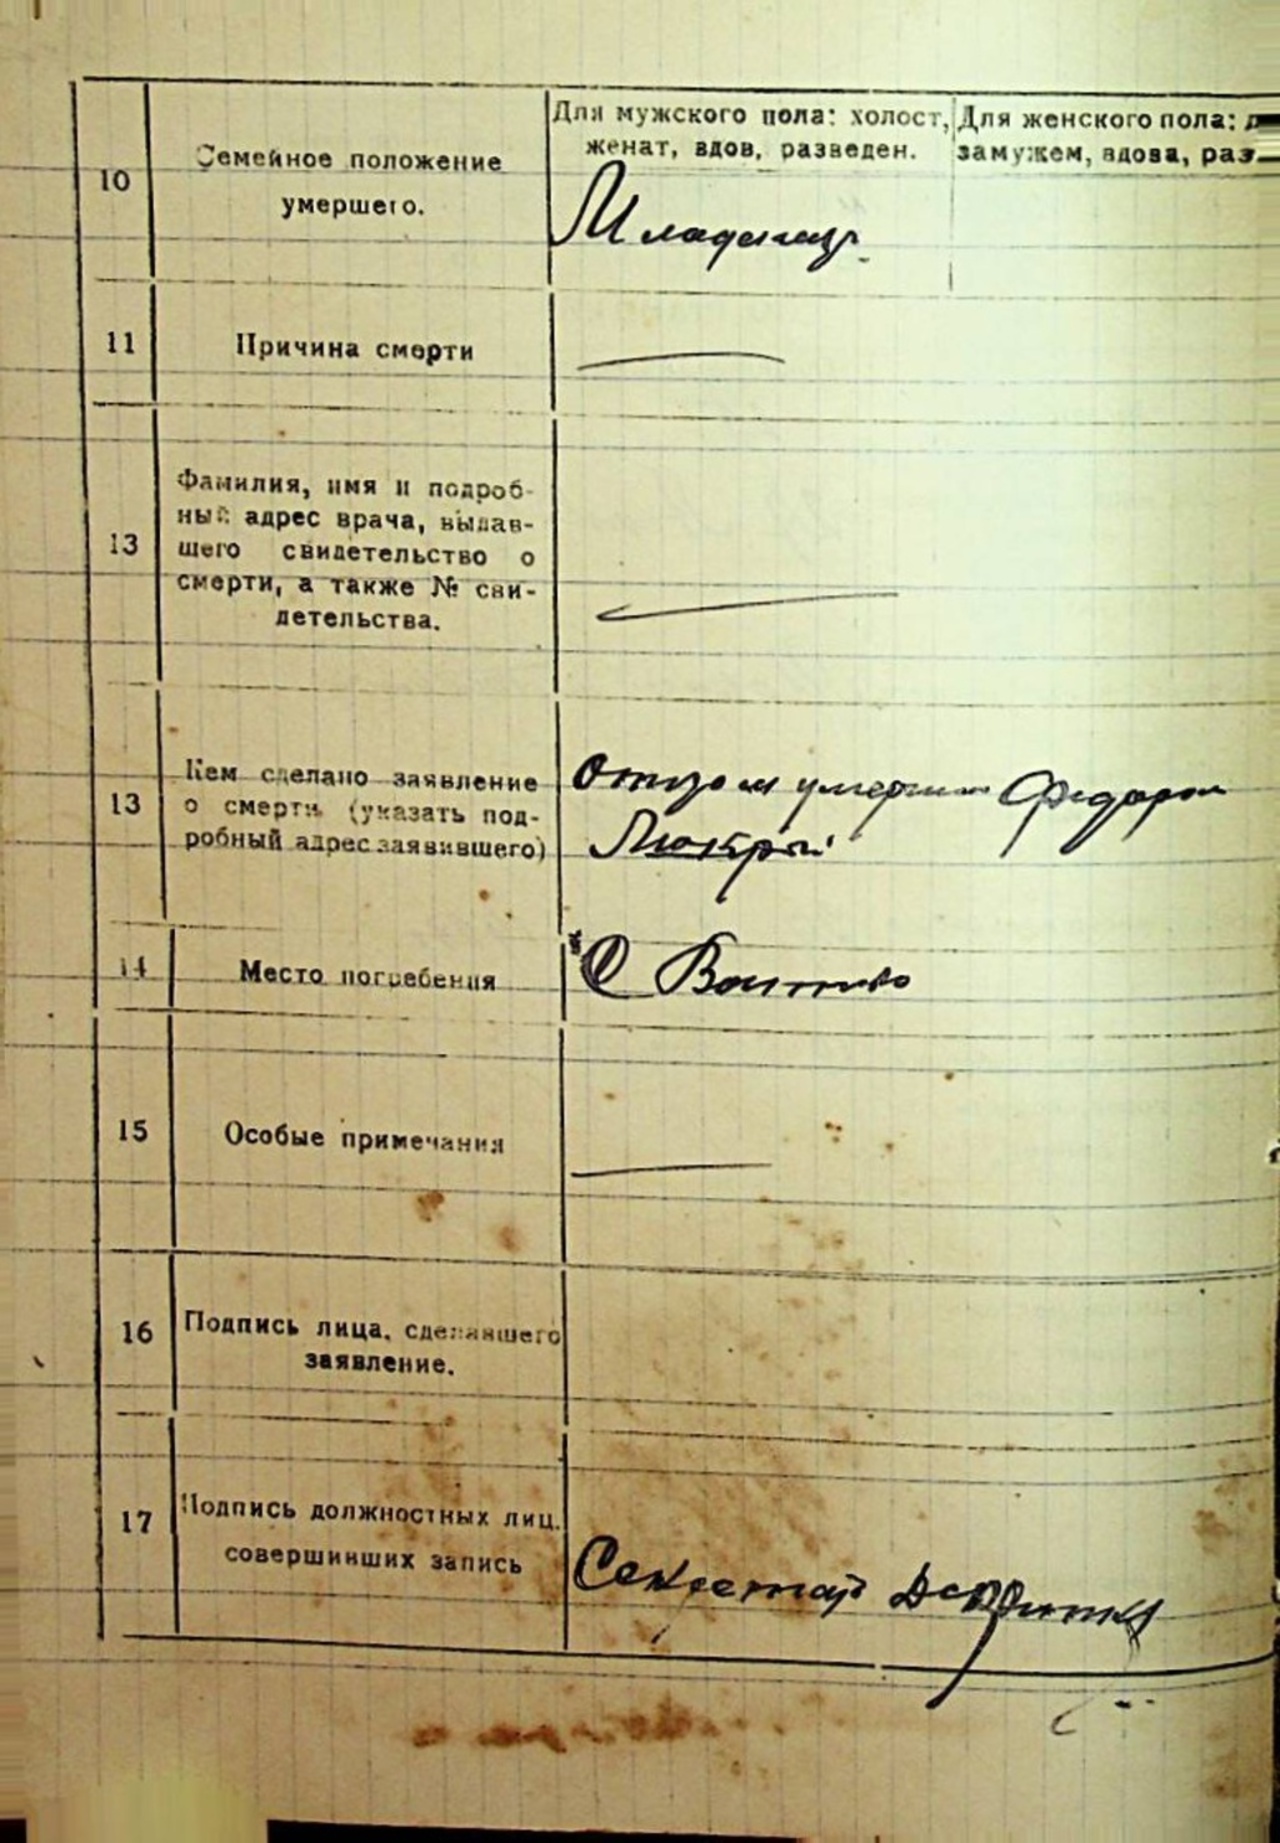 10
Семейное положение
умершего.
Для мужского пола: холост,
женат, вдов, разведен.
Для женского пола:
замужем, вдова, раз
Младенец
11
Причина смерти
13
Фамилия, имя и подроб-
ный адрес врача, выдав-
шего свидетельство о
смерти, а также № сви-
детельства.
13
Кем сделано заявление
о смерти (указать под-
робный адрес заявившего)
Отцом умерш Федором
14
Место погребения
С
15
Особые примечания
16
Подпись лица, сделавшего
заявление.
17
Подпись должностных лиц.
совершивших запись
Секретарь